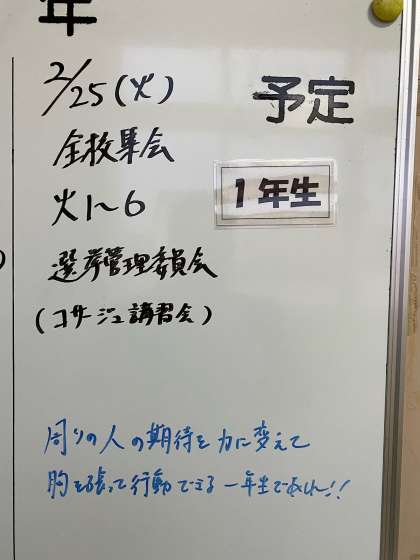 年
2/25(火)
予定
全校集会
1年生
火1〜6
選挙管理委員会
(コサージュ講習会)
周りの人の期待を力に変えて
胸を張って行動できる一年生であれ!!